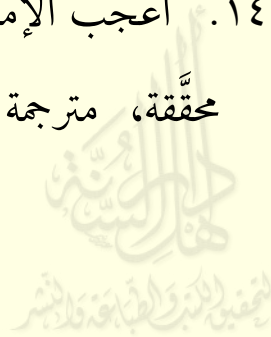 ١٤. أعجب الإم
محقَّقة، مترجمة
أهل السنة
لتحقيق الكتب والطباعة والنشر